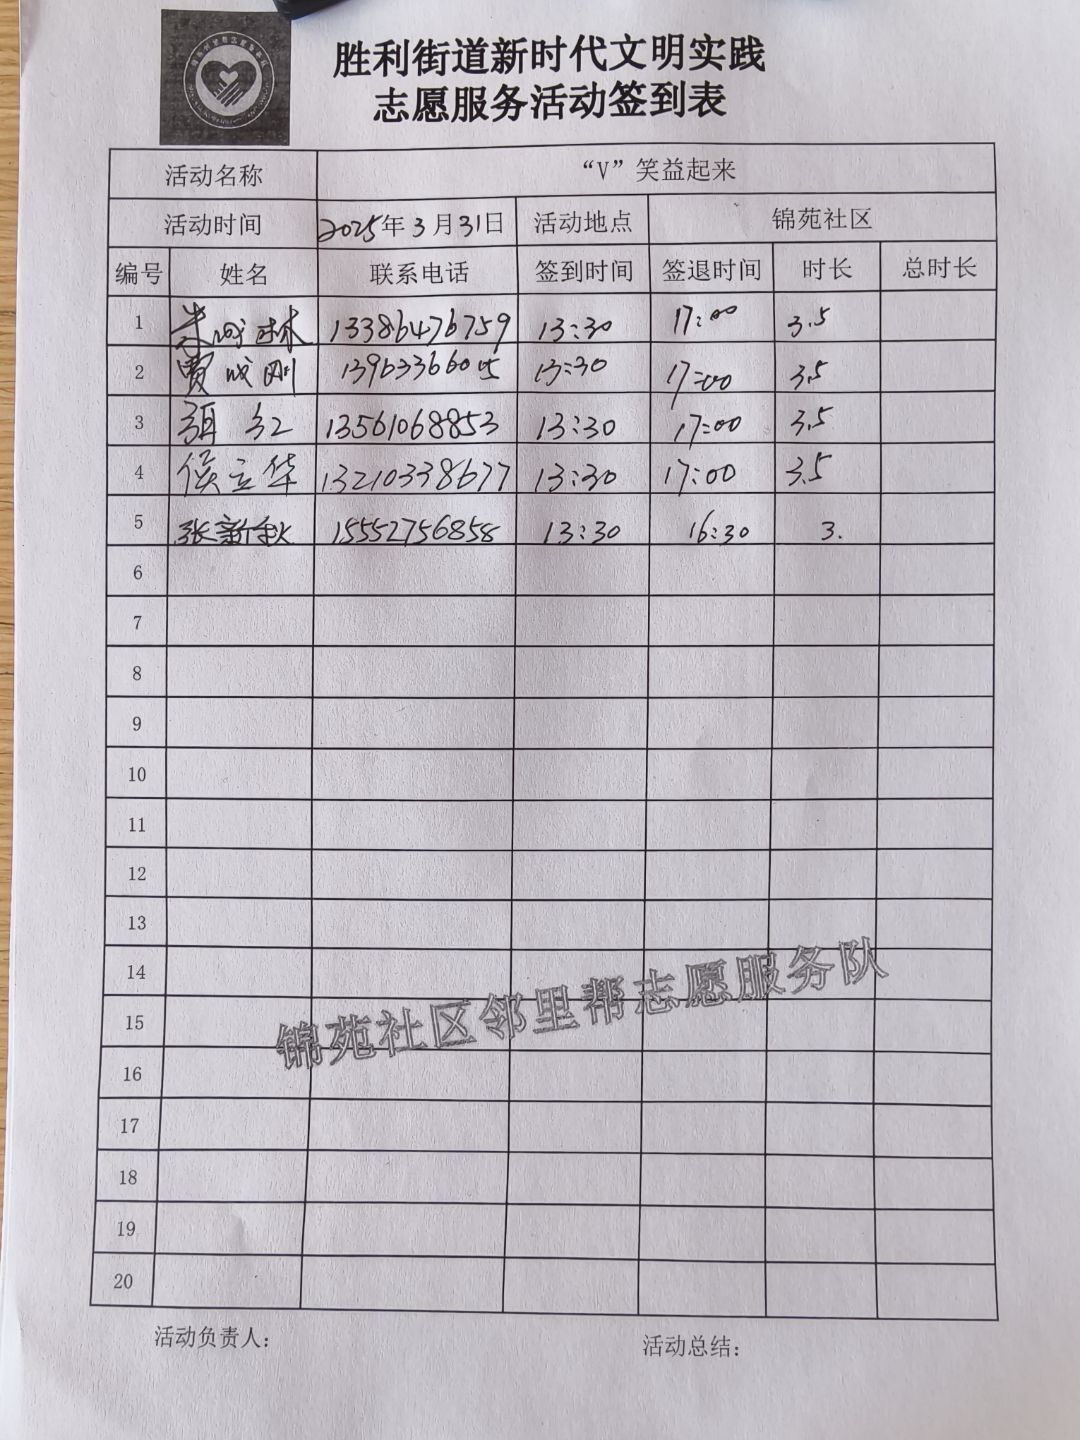 胜利街道新时代文明实践
志愿服务活动签到表
活动名称 “V”笑益起来
活动时间 2025年3月31日 活动地点 锦苑社区
编号 姓名 联系电话 签到时间 签退时间 时长 总时长
1 林 13386476759 13:30 17:00 3.5
2 贾成刚 13963366005 13:30 17:00 3.5
3 红 13561068853 13:30 17:00 3.5
4 侯立华 13210338677 13:30 17:00 3.5
5 张新秋 15552756858 13:30 16:30 3.
6
7
8
9
10
11
12
13
14
15
16
17
18
19
20
锦苑社区邻里帮志愿服务队
活动负责人: 活动总结: